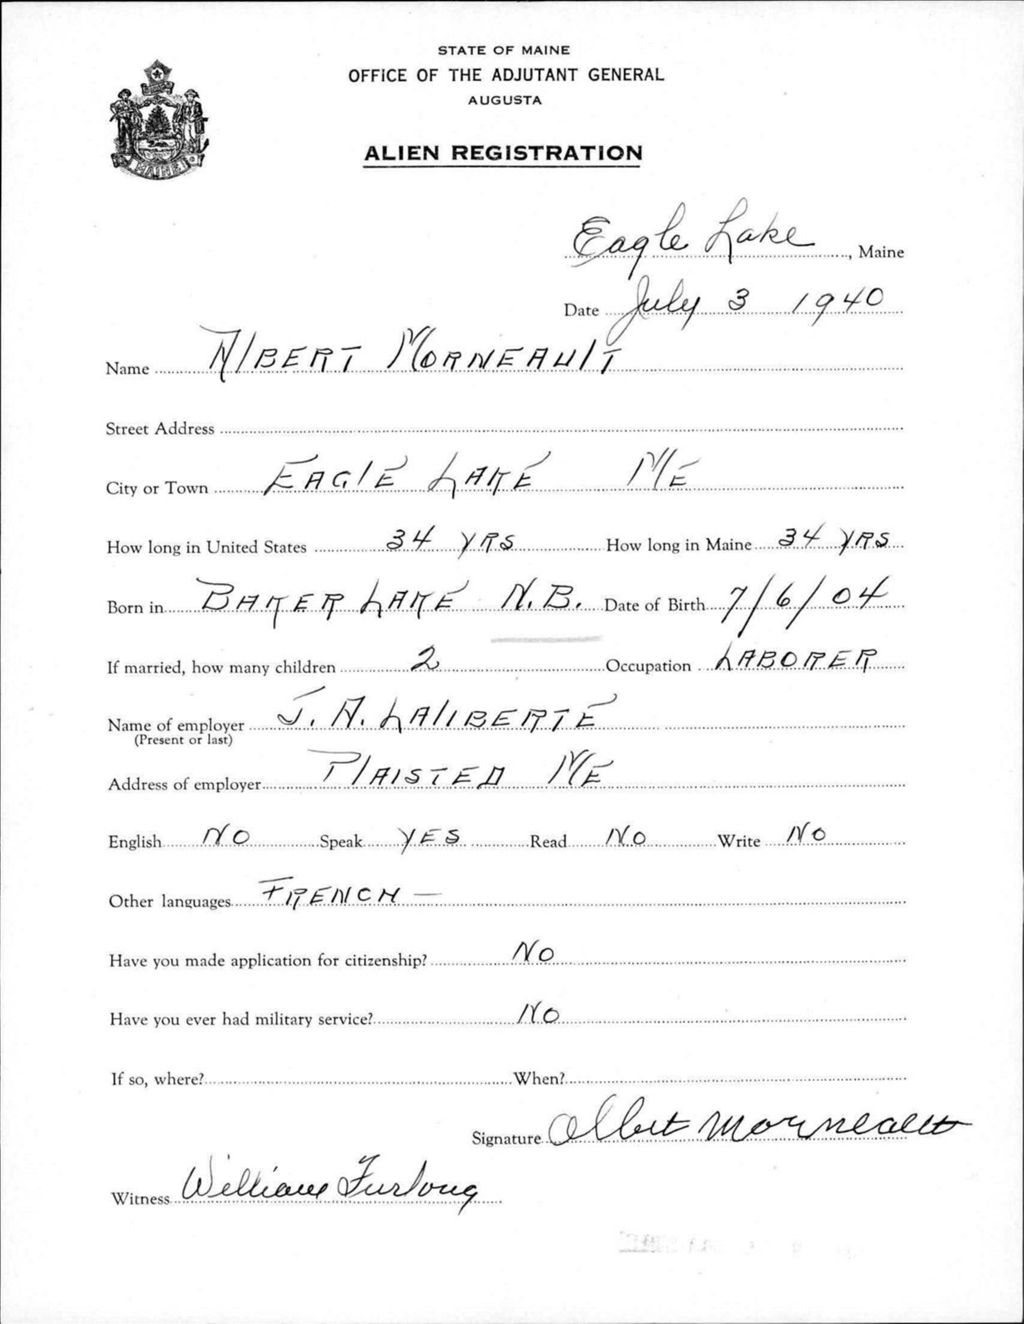 STATE OF MAINE
OFFICE OF THE ADJUTANT GENERAL
AUGUSTA
ALIEN REGISTRATION
MAINE
Eagle Lake, Maine
Date July 3 1940
Name Albert Morneault
Street Address
City or Town Eagle Lake Me
How long in United States 34 yrs How long in Maine 34 yrs
Born in Baker Lake N.B. Date of Birth 7/6/04
If married, how many children 2 Occupation Laborer
Name of employer J. A. Laliberte
(Present or last)
Address of employer Plaisted Me
English No Speak Yes Read No Write No
Other languages French —
Have you made application for citizenship? No
Have you ever had military service? No
If so, where? When?
Signature Albert Morneault
Witness William Furlong